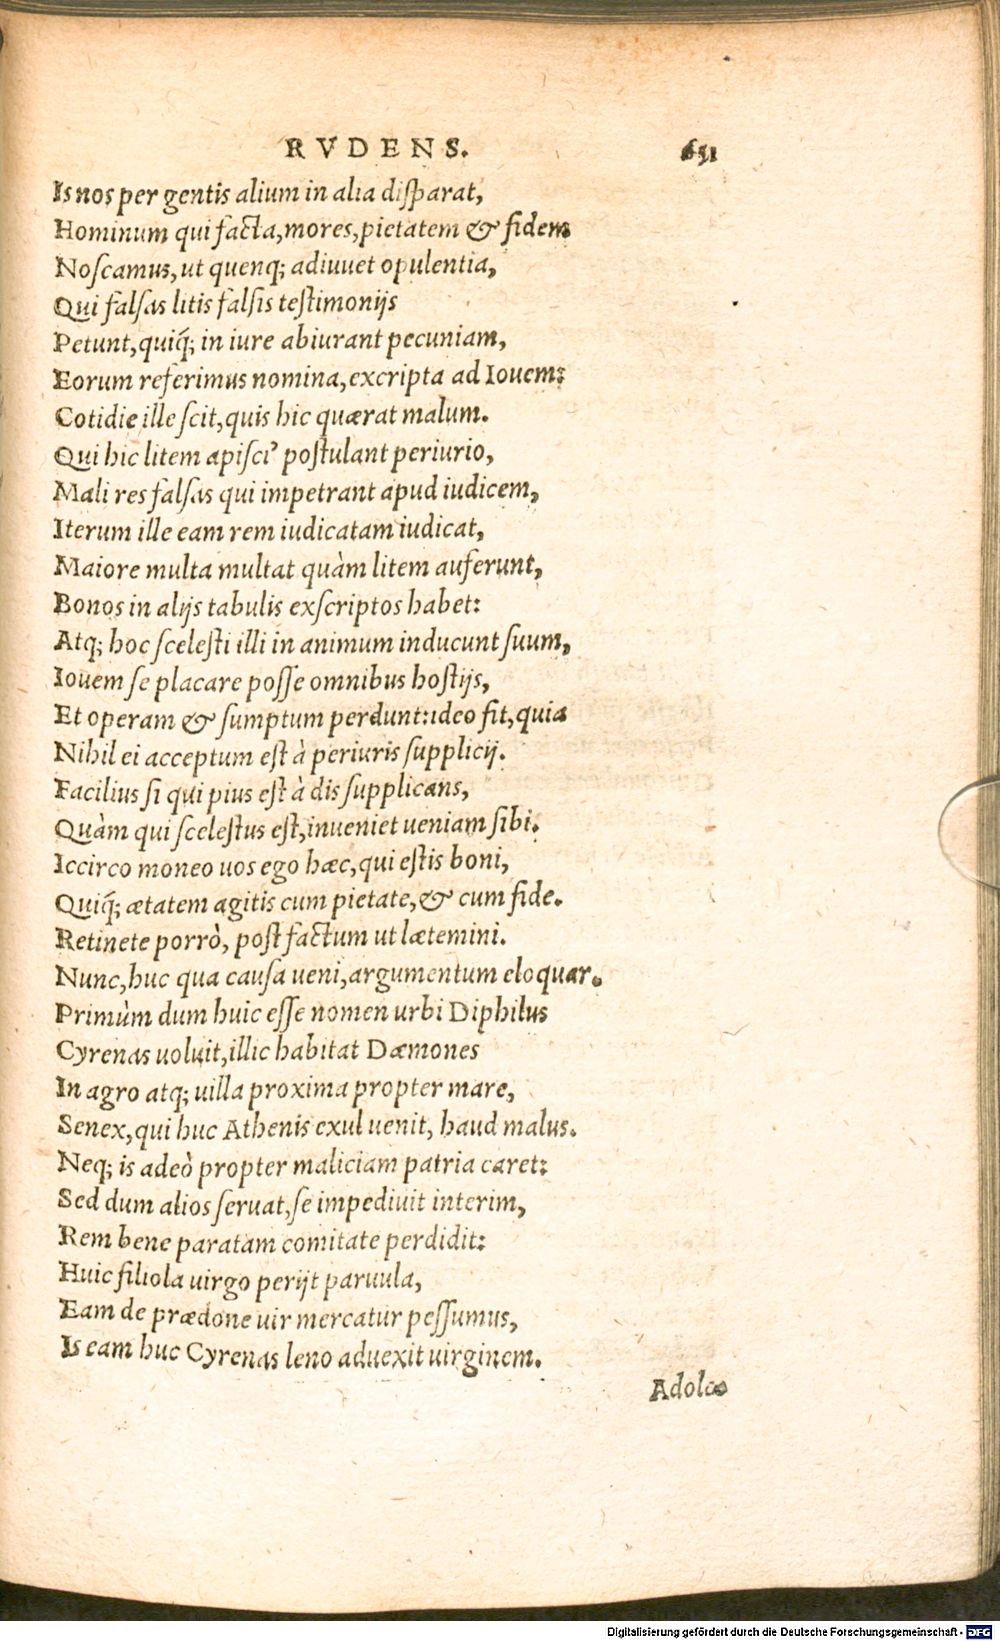 RVDENS. 651
Is nos per gentis alium in alia disparat,
Hominum qui facta, mores, pietatem & fidem
Noscamus, ut quenq; adiuuet opulentia,
Qui falsas litis falsis testimonijs
Petunt, quiq́; in iure abiurant pecuniam,
Eorum referimus nomina, excripta ad Iouem:
Cotidie ille scit, quis hic quærat malum.
Qui hic litem apisci' postulant periurio,
Mali res falsas qui impetrant apud iudicem,
Iterum ille eam rem iudicatam iudicat,
Maiore multa multat quàm litem auferunt,
Bonos in alijs tabulis exscriptos habet:
Atq; hoc scelesti illi in animum inducunt suum,
Iouem se placare posse omnibus hostijs,
Et operam & sumptum perdunt: ideo fit, quia
Nihil ei acceptum est à periuris supplicij.
Facilius si qui pius est à dis supplicans,
Quàm qui scelestus est, inueniet ueniam sibi.
Iccirco moneo uos ego hæc, qui estis boni,
Quiq́; ætatem agitis cum pietate, & cum fide.
Retinete porrò, post factum ut lætemini.
Nunc, huc qua causa ueni, argumentum eloquar.
Primùm dum huic esse nomen urbi Diphilus
Cyrenas uoluit, illic habitat Dæmones
In agro atq; uilla proxima propter mare,
Senex, qui huc Athenis exul uenit, haud malus.
Neq; is adeò propter maliciam patria caret:
Sed dum alios seruat, se impediuit interim,
Rem bene paratam comitate perdidit:
Huic filiola uirgo perijt paruula,
Eam de prædone uir mercatur pessumus,
Is eam huc Cyrenas leno aduexit uirginem.
Adoles
Digitalisierung gefördert durch die Deutsche Forschungsgemeinschaft - DFG